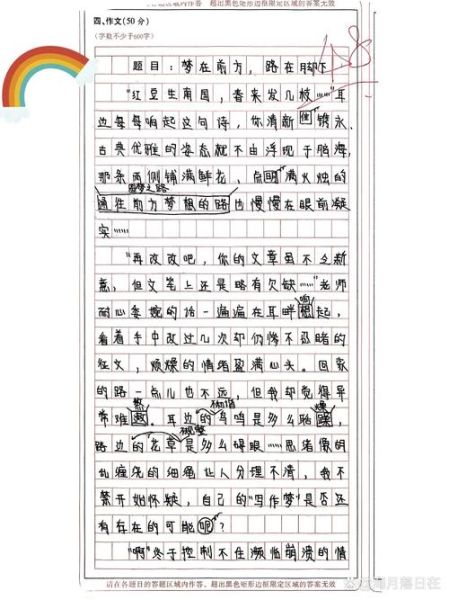 请在各题目的答题区域内作答,超出黑色矩形边框限定区域的答案无效
四、作文(50分)
(字数不少于600字)
48
题目:梦在前方,路在脚下
“红豆生南国,春来发几枝……”耳
边每每响起这句诗,你清新隹镌永、
古典优雅的姿态就不由浮现于脑海,
那条两侧铺满鲜花,点满火烛的
圆梦之路
通往前方梦想的路也慢慢在眼前凝
实……
“再改改吧,你的文章虽不乏新
意,但文笔上还是略有欠缺……”老师
耐心委婉的话一遍遍在耳畔响起,
看着手中改过几次却仍惨不忍睹的
征文,烦燥的情绪盈满心头。回家
的路一点儿也不远,但我却觉得异
常难熬。耳边的鸟鸣是多么聒噪,
路边的花草是多么碍眼……思绪像前
乱缠绕的细绳让人分理不清,我不
禁开始怀疑,自己的“写作梦”是否还
有存在的可能呢?
“啊”终于控制不住濒临崩溃的情
请在各题目的答题区域内作答,超出黑色矩形边框限定区域的答案无效